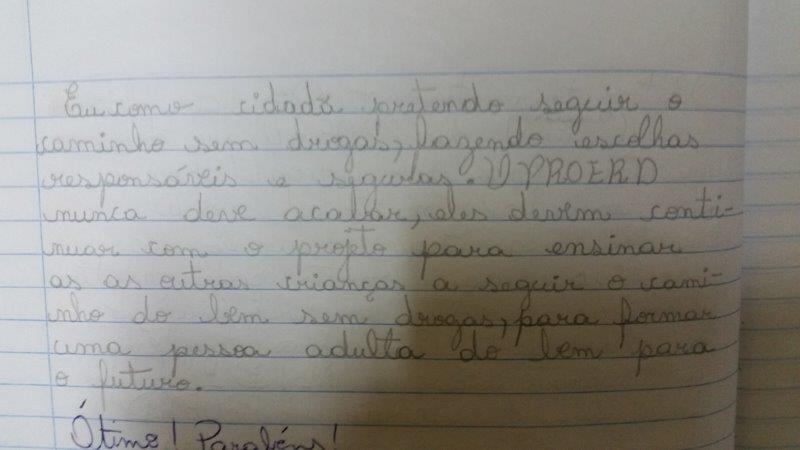 Eu como cidadã pretendo seguir o
caminho sem drogas, fazendo escolhas
responsáveis e seguras. O PROERD
nunca deve acabar, eles devem conti-
nuar com o projeto para ensinar
as as outras crianças a seguir o cami-
nho do bem sem drogas, para formar
uma pessoa adulta do bem para
o futuro.
Ótimo! Parabéns!